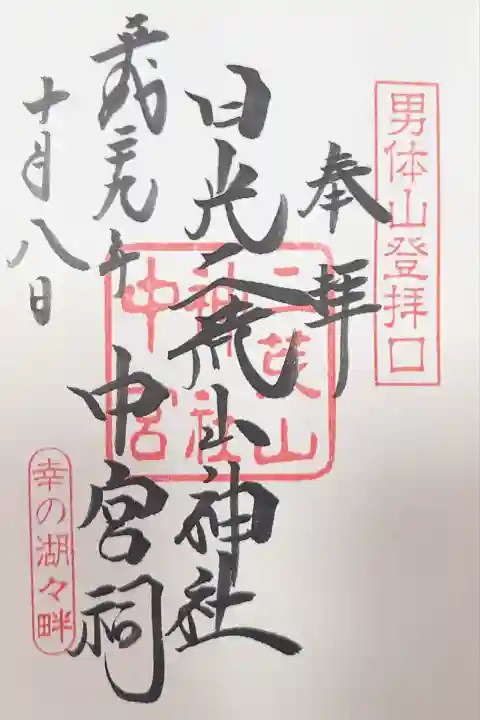 男体山登拝口
奉拝
日光二荒山神社
中宮祠
二荒山
神社
中宮
平成二九年
十月八日
幸の湖々畔